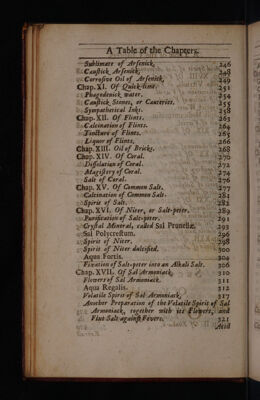 A Table of the Chapters.
Sublimate of Arsenick, 246
Caustick Arsenick, 248
Corrosive Oil of Arsenick, 249
Chap. XI. Of Quick-lime. 251
Phagedenick water. 254
Caustick Stones, or Cauteries. 255
Sympathetical Inks. 258
Chap. XII. Of Flints. 263
Calcination of Flints. 264
Tincture of Flints. 265
Liquor of Flints, 266
Chap. XIII. Oil of Bricks. 268
Chap. XIV. Of Coral. 270
Dissolution of Coral. 272
Magistery of Coral. 274
Salt of Coral. 276
Chap. XV. Of Common Salt. 277
Calcination of Common Salt. 281
Spirit of Salt. 282
Chap. XVI. Of Niter, or Salt-peter. 289
Purification of Salt-peter. 291
Crystal Mineral, called Sal Prunellæ. 293
Sal Polycrestum. 296
Spirit of Niter. 298
Spirit of Niter dulcified. 300
Aqua Fortis. 304
Fixation of Salt-peter into an Alkali Salt. 306
Chap. XVII. Of Sal Armoniack, 310
Flowers of Sal Armoniack. 311
Aqua Regalis. 312
Volatile Spirit of Sal Armoniack, 317
Another Preparation of the Volatile Spirit of Sal
Armoniack, together with its Flowers, and
Fixt Salt against Fevers. 321
Acid